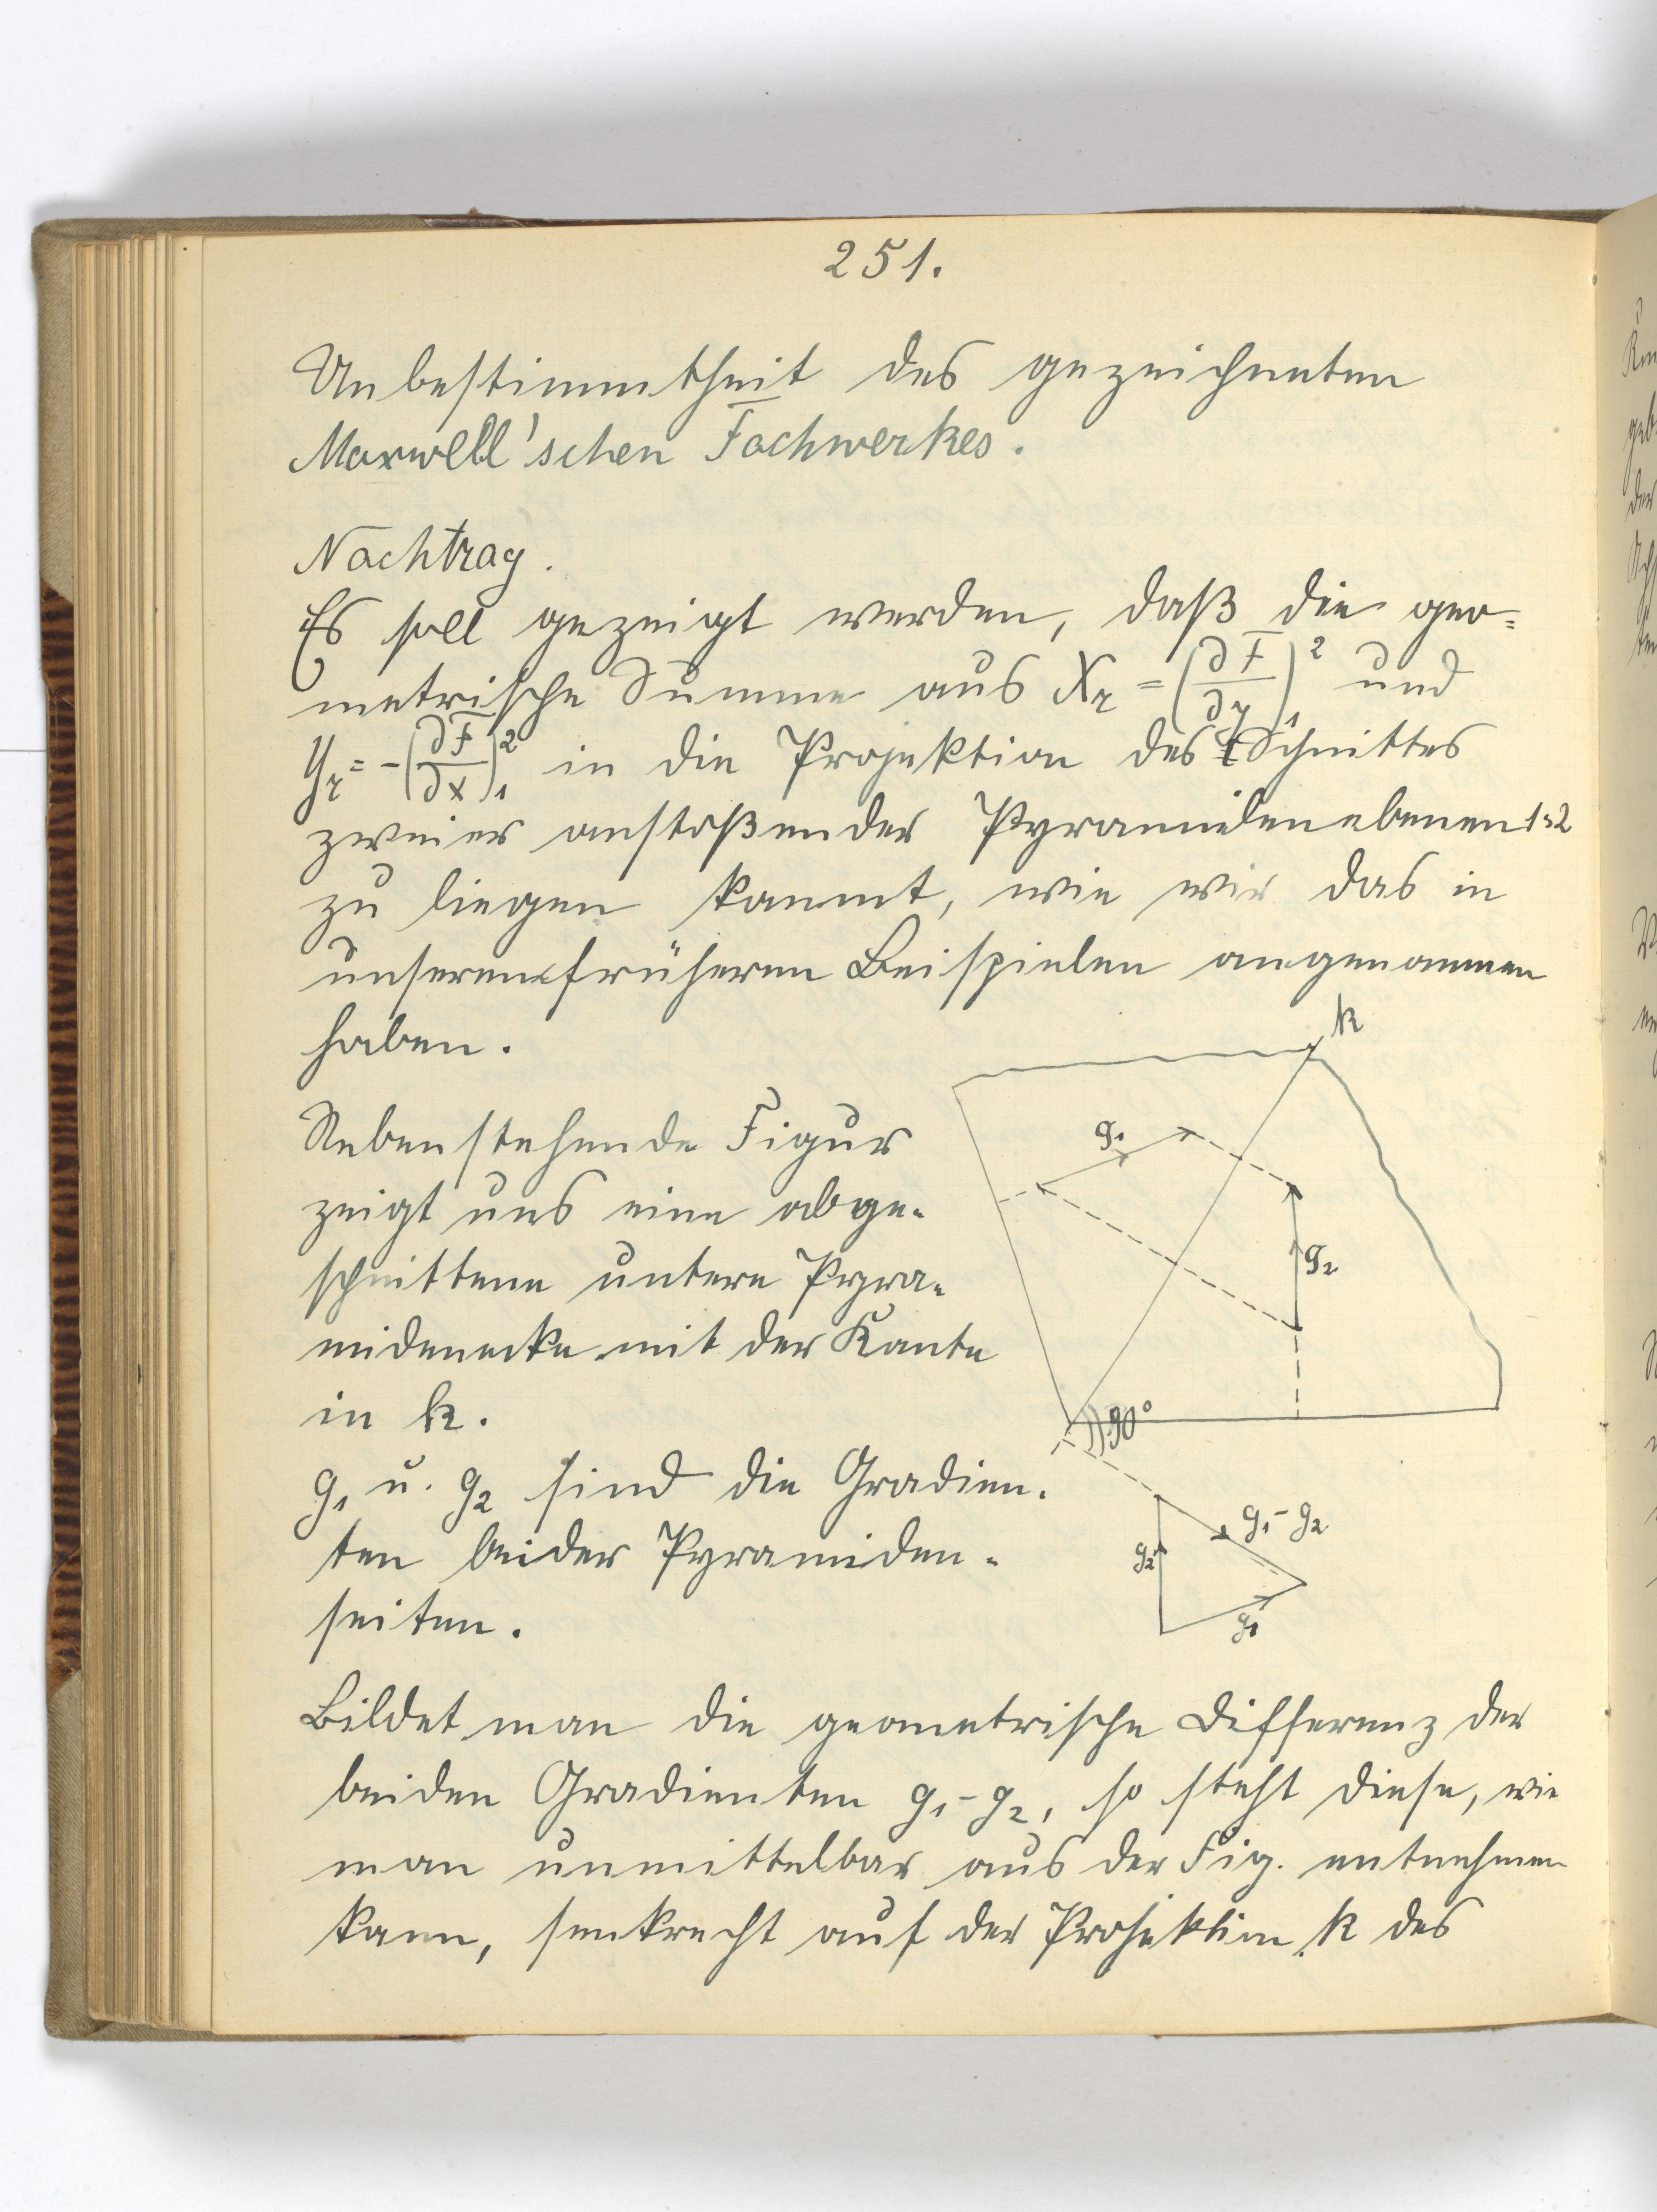 251.
Unbestimmtheit des gezeichneten
Maxwell'schen Fachwerkes.
Nachtrag.
Es soll gezeigt werden, daß die geo=
metrische Summe aus X_r = (∂F/∂y)₁² und
Y_r = -(∂F/∂x)₁² in die Projektion des Schnittes
zweier anstoßender Pyramidenebenen 1=2
zu liegen kommt, wie wir das in
unseren früheren Beispielen angenommen
haben.
k
Nebenstehende Figur
zeigt uns eine abge-
schnittene untere Pyra-
midenecke mit der Kante
in k.
g₁
g₂
90°
g₁ u. g₂ sind die Gradien-
ten beider Pyramiden-
seiten.
g₁ - g₂
g₂
g₁
Bildet man die geometrische Differenz der
beiden Gradienten g₁ - g₂, so steht diese, wie
man unmittelbar aus der Fig. entnehmen
kann, senkrecht auf der Projektion k des